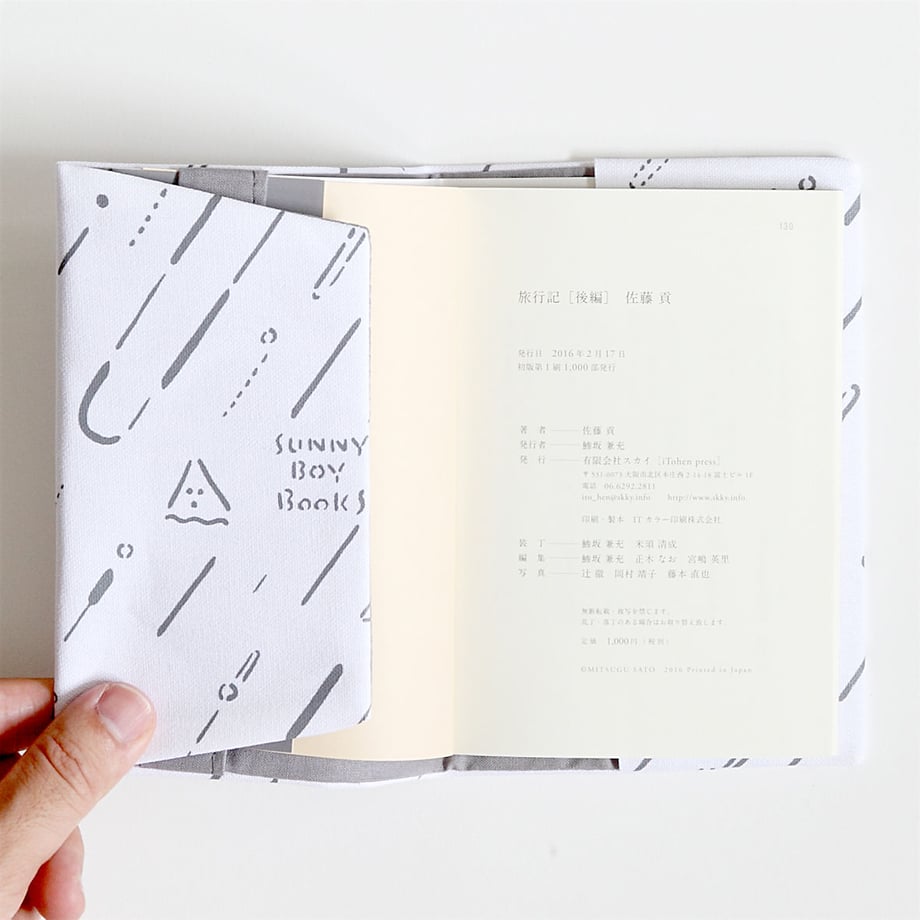 SUNNY
BOY
BOOKS
130
旅行記［後編］ 佐藤 貢
発行日 2016年2月17日
初版第1刷 1,000部発行
著 者――佐藤 貢
発行者――鯵坂 兼充
発 行――有限会社スカイ［iTohen press］
〒531-0073 大阪市北区本庄西2-14-18 富士ビル1F
電話 06.6292.2811
ito_hen@skky.info http://www.skky.info
印刷・製本 ITカラー印刷株式会社
装 丁――鯵坂 兼充 米須 清成
編 集――鯵坂 兼充 正木 なお 宮嶋 英里
写 真――辻 徹 岡村 靖子 藤本 直也
無断転載・複写を禁じます。
乱丁・落丁のある場合はお取り替え致します。
定価 1,000円（税別）
©MITSUGU SATO 2016 Printed in Japan